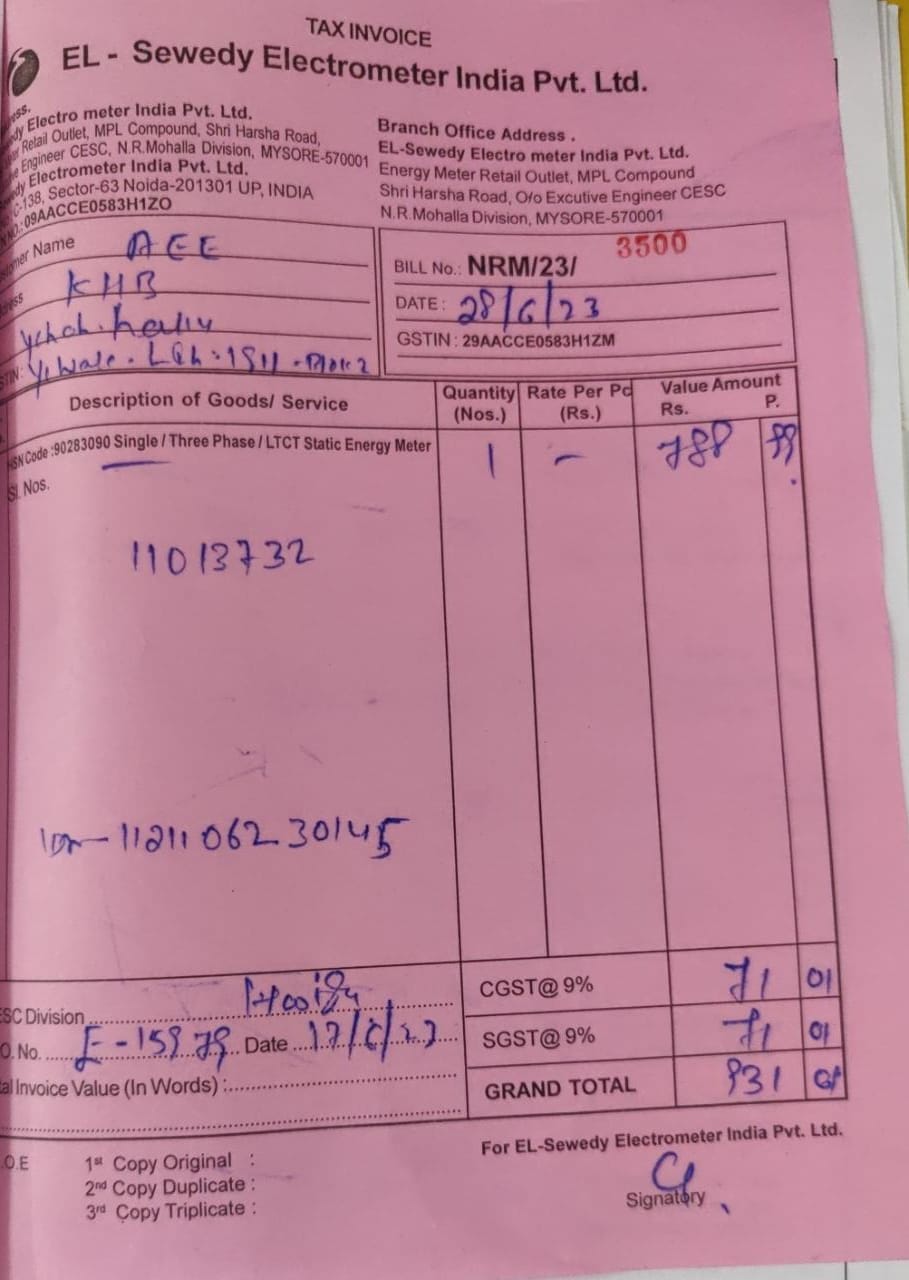 TAX INVOICE
EL - Sewedy Electrometer India Pvt. Ltd.
Electro meter India Pvt. Ltd.
Retail Outlet, MPL Compound, Shri Harsha Road,
Engineer CESC, N.R.Mohalla Division, MYSORE-570001
Electrometer India Pvt. Ltd.
C-138, Sector-63 Noida-201301 UP, INDIA
09AACCE0583H1ZO
Branch Office Address .
EL-Sewedy Electro meter India Pvt. Ltd.
Energy Meter Retail Outlet, MPL Compound
Shri Harsha Road, O/o Excutive Engineer CESC
N.R.Mohalla Division, MYSORE-570001
Name AEE
KHB
BILL No.: NRM/23/ 3500
DATE : 28/6/23
GSTIN : 29AACCE0583H1ZM
Description of Goods/ Service Quantity (Nos.) Rate Per Pc (Rs.) Value Amount Rs. P.
HSN Code :90283090 Single / Three Phase / LTCT Static Energy Meter 1 - 788 99
Sl. Nos.
11013732
1121106230145
CGST@ 9% 71 01
SGST@ 9% 71 01
GRAND TOTAL 931 01
SC Division
O. No. E-15979 Date 17/6/23
al Invoice Value (In Words) :
.O.E
1st Copy Original :
2nd Copy Duplicate :
3rd Copy Triplicate :
For EL-Sewedy Electrometer India Pvt. Ltd.
Signatory